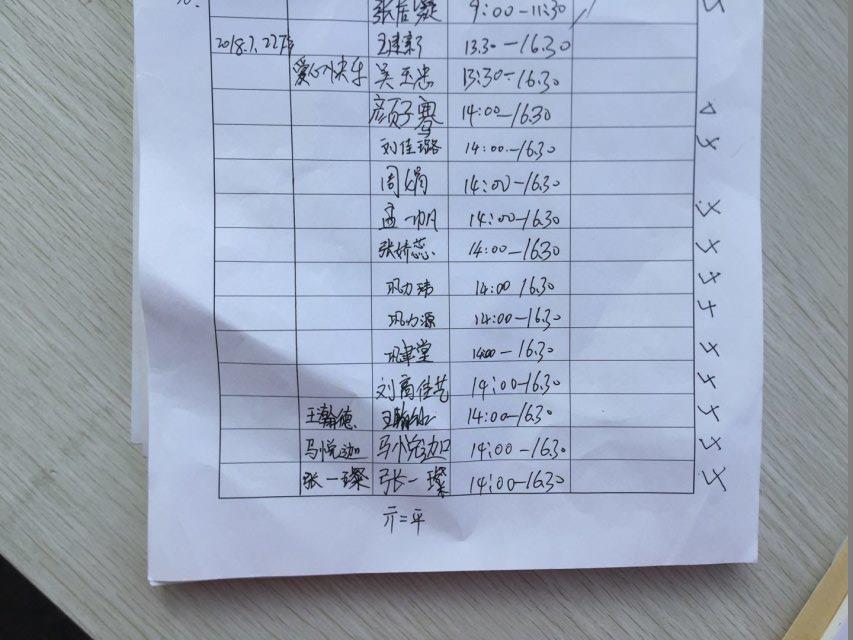 9:00-11:30
2018.7.22下午 13.30-16.30
爱心快乐 吴玉忠 13:30-16.30
颜子骞 14:00-16.30
刘佳璐 14:00-16.30
周娟 14:00-16.30
孟一帆 14:00-16.30
张娇蕊 14:00-16.30
巩力玮 14:00 16.30
巩力源 14:00-16.30
巩聿堂 1400-16.30
刘商佳艺 14:00-16.30
王瀚德 王瀚 14:00-16.30
马悦迦 马悦迦 14:00-16.30
张一璨 张一璨 14:00-16.30
亓二平